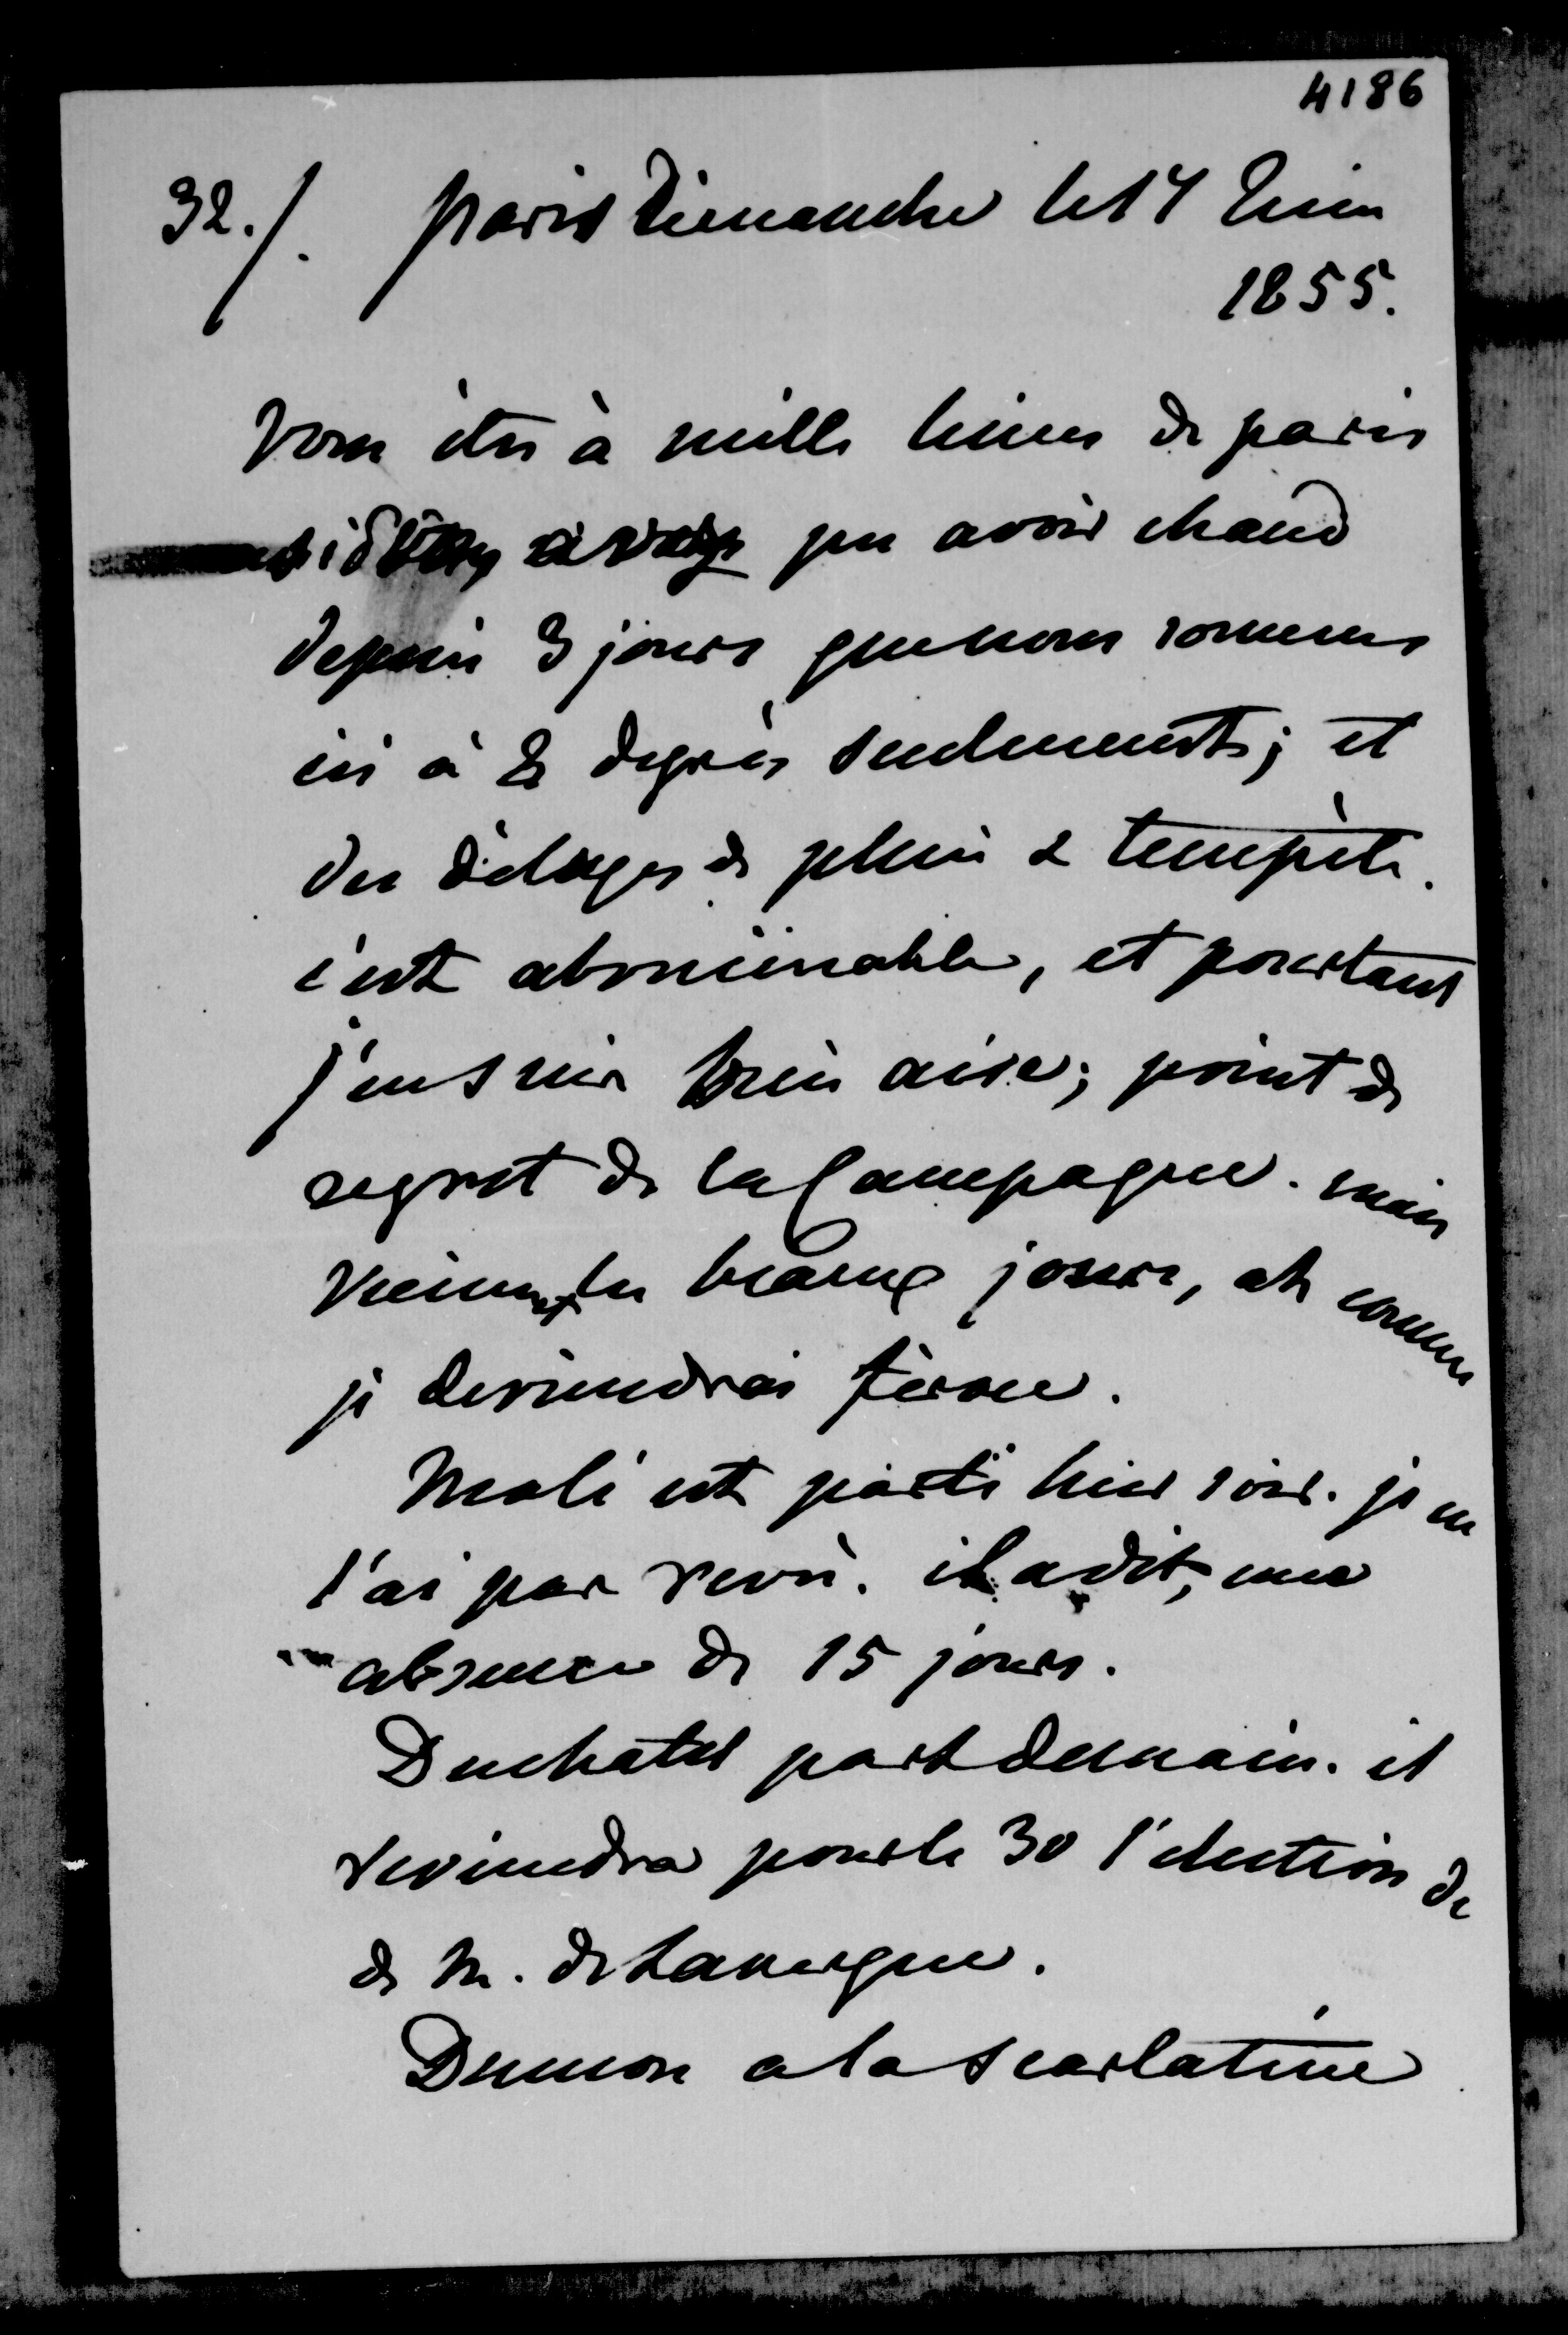 4186
32./. paris Dimanche le 17 Juin
1855.
Vous êtes à mille lieues de paris
si vous avez pu avoir chaud
depuis 3 jours que nous sommes
ici à 8 degrès seulement; et
des déluges de pluie & tempète.
c'est abominable, et pourtant
j'en suis bien aise; point de
regret de la Campagne. mais
viennent les beaux jours, ah comme
je deviendrai féroce.
Molé est parti hier soir. je ne
l'ai pas revu. il a dit, une
absence de 15 jours.
Duchatel part demain. il
reviendra pour le 30 l'election de
de M. de Lavergne.
Dumon a la scarlatine